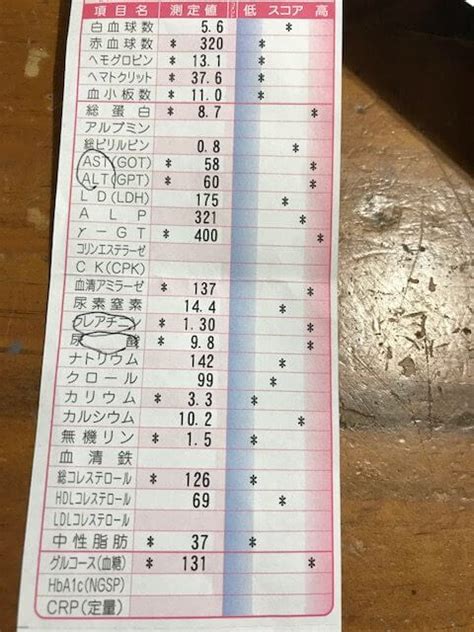 項目名 測定値 低 スコア 高
白血球数 5.6 *
赤血球数 * 320 *
ヘモグロビン * 13.1 *
ヘマトクリット * 37.6 *
血小板数 * 11.0 *
総蛋白 * 8.7 *
アルブミン
総ビリルビン 0.8 *
AST(GOT) * 58 *
ALT(GPT) * 60 *
LD(LDH) 175 *
ALP 321 *
γ-GT * 400 *
コリンエステラーゼ
CK(CPK)
血清アミラーゼ * 137 *
尿素窒素 14.4 *
クレアチニン * 1.30 *
尿酸 * 9.8 *
ナトリウム 142 *
クロール 99 *
カリウム * 3.3 *
カルシウム 10.2 *
無機リン * 1.5 *
血清鉄
総コレステロール * 126 *
HDLコレステロール 69 *
LDLコレステロール
中性脂肪 * 37 *
グルコース(血糖) * 131 *
HbA1c(NGSP)
CRP(定量)